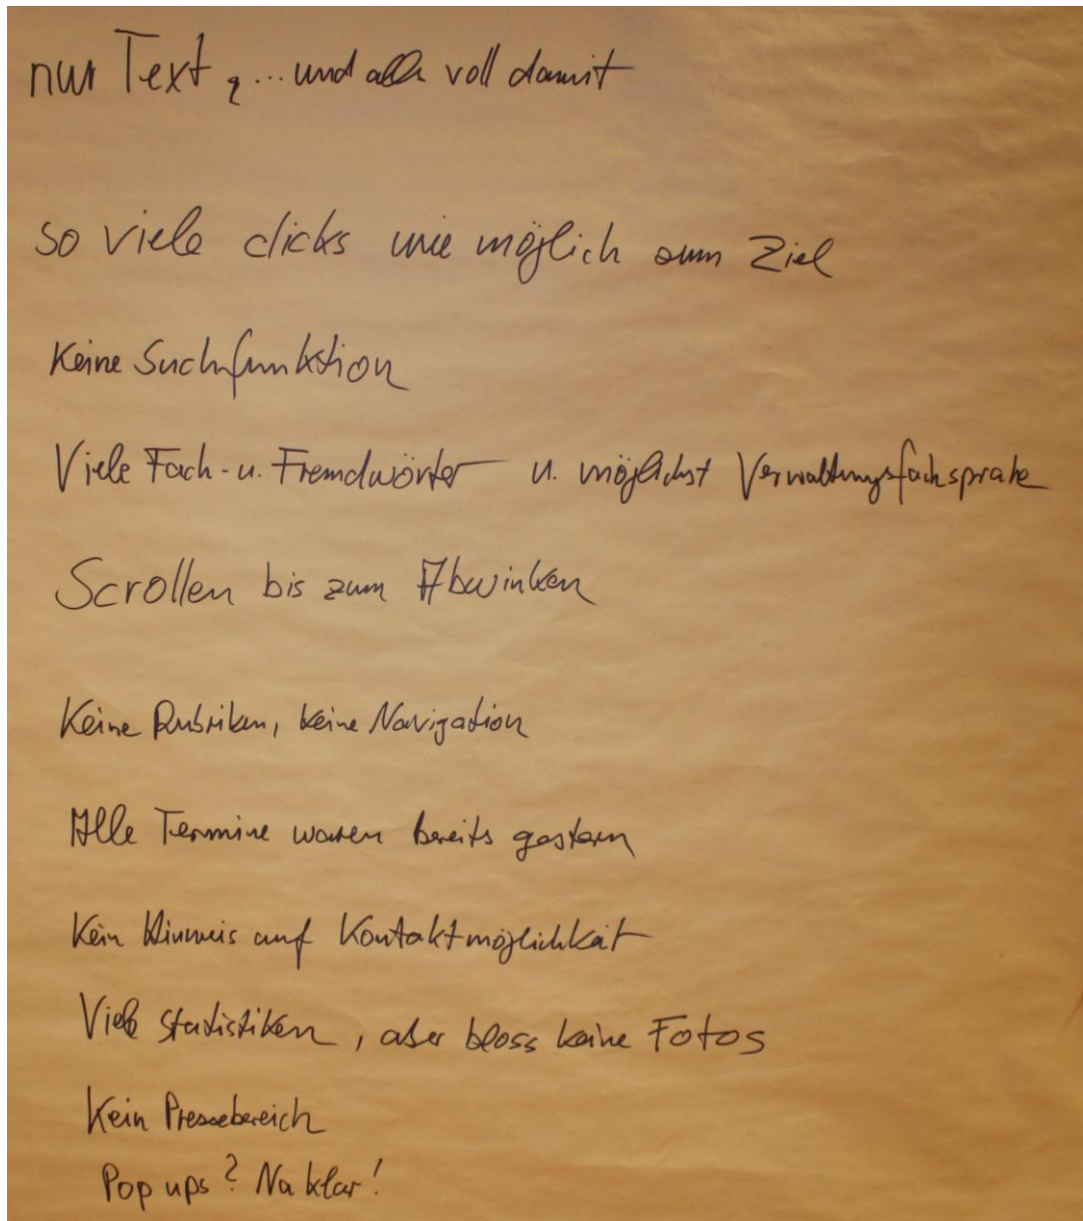 nur Text, ... und alles voll damit
so viele clicks wie möglich zum Ziel
Keine Suchfunktion
Viele Fach- u. Fremdwörter u. möglichst Verwaltungsfachsprake
Scrollen bis zum Abwinken
Keine Rubriken, keine Navigation
Alle Termine waren bereits gestern
Kein Hinweis auf Kontaktmöglichkeit
Viele Statistiken, aber bloss keine Fotos
Kein Pressebereich
Pop ups? Na klar!